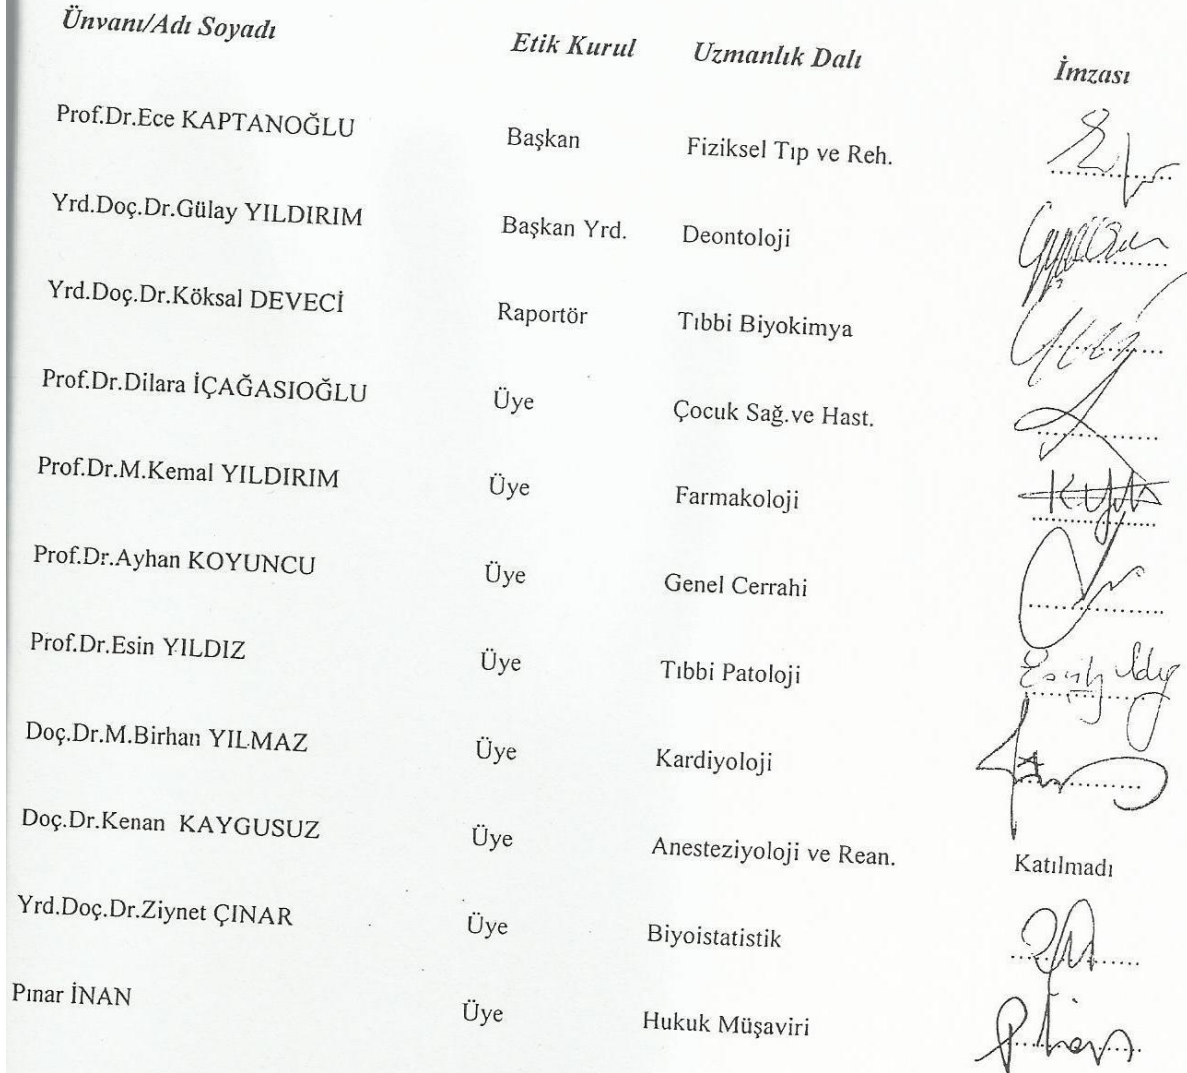 Ünvanı/Adı Soyadı Etik Kurul Uzmanlık Dalı İmzası
Prof.Dr.Ece KAPTANOĞLU Başkan Fiziksel Tıp ve Reh.
Yrd.Doç.Dr.Gülay YILDIRIM Başkan Yrd. Deontoloji
Yrd.Doç.Dr.Köksal DEVECİ Raportör Tıbbi Biyokimya
Prof.Dr.Dilara İÇAĞASIOĞLU Üye Çocuk Sağ.ve Hast.
Prof.Dr.M.Kemal YILDIRIM Üye Farmakoloji
Prof.Dr.Ayhan KOYUNCU Üye Genel Cerrahi
Prof.Dr.Esin YILDIZ Üye Tıbbi Patoloji
Doç.Dr.M.Birhan YILMAZ Üye Kardiyoloji
Doç.Dr.Kenan KAYGUSUZ Üye Anesteziyoloji ve Rean. Katılmadı
Yrd.Doç.Dr.Ziynet ÇINAR Üye Biyoistatistik
Pınar İNAN Üye Hukuk Müşaviri